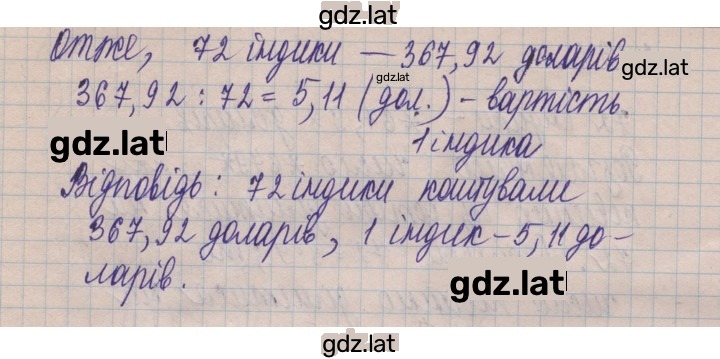 gdz.lat
Отже, 72 індики — 367,92 доларів
gdz.lat
367,92 : 72 = 5,11 (дол.) - вартість
gdz.lat
1 індика
Відповідь: 72 індики коштували
367,92 доларів, 1 індик - 5,11 до-
ларів.
gdz.lat
gdz.lat